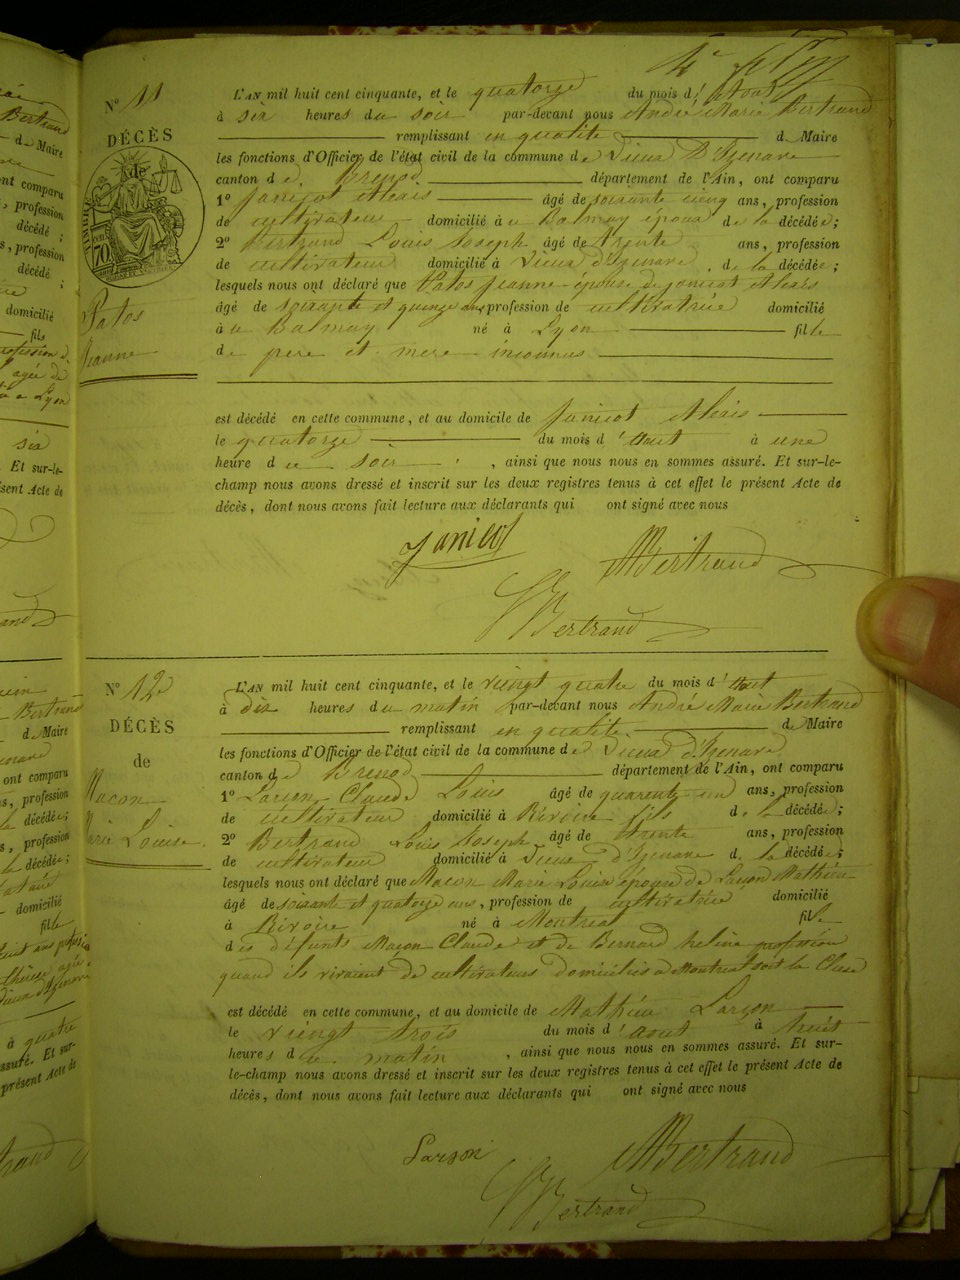 4e
N° 11
DÉCÈS
de
Patos
Jeanne
L'AN mil huit cent cinquante, et le quatorze du mois d'Aout
à six heures du soir par-devant nous André Marie Bertrand
remplissant en qualité de Maire
les fonctions d'Officier de l'état civil de la commune de Vieux D'Izenave
canton de Brenod département de l'Ain, ont comparu
1° Janicot Alexis âgé de soixante cinq ans, profession
de cultivateur domicilié à u Balmay époux de la décédée;
2° Bertrand Louis Joseph âgé de trente ans, profession
de cultivateur domicilié à Vieux d'Izenave de la décédée;
lesquels nous ont déclaré que Patos Jeanne épouse de Janicot Alexis
âgé de soixante et quinze ans, profession de cultivatrice domicilié
à u Balmay né à Lyon fille
de pere et mere inconnus
est décédé en cette commune, et au domicile de Janicot Alexis
le quatorze du mois d'aout à une
heure du soir, ainsi que nous nous en sommes assuré. Et sur-le-
champ nous avons dressé et inscrit sur les deux registres tenus à cet effet le présent Acte de
décès, dont nous avons fait lecture aux déclarants qui ont signé avec nous
Janicot
AMBertrand
Bertrand
N° 12
DÉCÈS
de
Macon
Marie Louise
L'AN mil huit cent cinquante, et le viengt quatre du mois d'Aout
à dix heures du matin par-devant nous André Marie Bertrand
remplissant en qualité de Maire
les fonctions d'Officier de l'état civil de la commune de Vieux d'Izenave
canton de Brenod département de l'Ain, ont comparu
1° Larson Claude Louis âgé de quarente un ans, profession
de cultivateur domicilié à Rivoire fils de la décédée;
2° Bertrand Louis Joseph âgé de trente ans, profession
de cultivateur domicilié à Vieux d'Izenave de la décédée;
lesquels nous ont déclaré que Macon Marie Louise épouse de Larson Mathieu
âgé de soixante et quatorze ans, profession de cultivatrice domicilié
à Rivoire né à Montreal fille
des défunts Macon Claude et de Bernard heline profession
quand ils vivaient de cultivateurs domiciliés a Montreal soit la Cluse
est décédé en cette commune, et au domicile de Mathieu Larson
le viengt trois du mois d'aout à huit
heures du matin, ainsi que nous nous en sommes assuré. Et sur-
le-champ nous avons dressé et inscrit sur les deux registres tenus à cet effet le présent Acte de
décès, dont nous avons fait lecture aux déclarants qui ont signé avec nous
Larson
AMBertrand
Bertrand